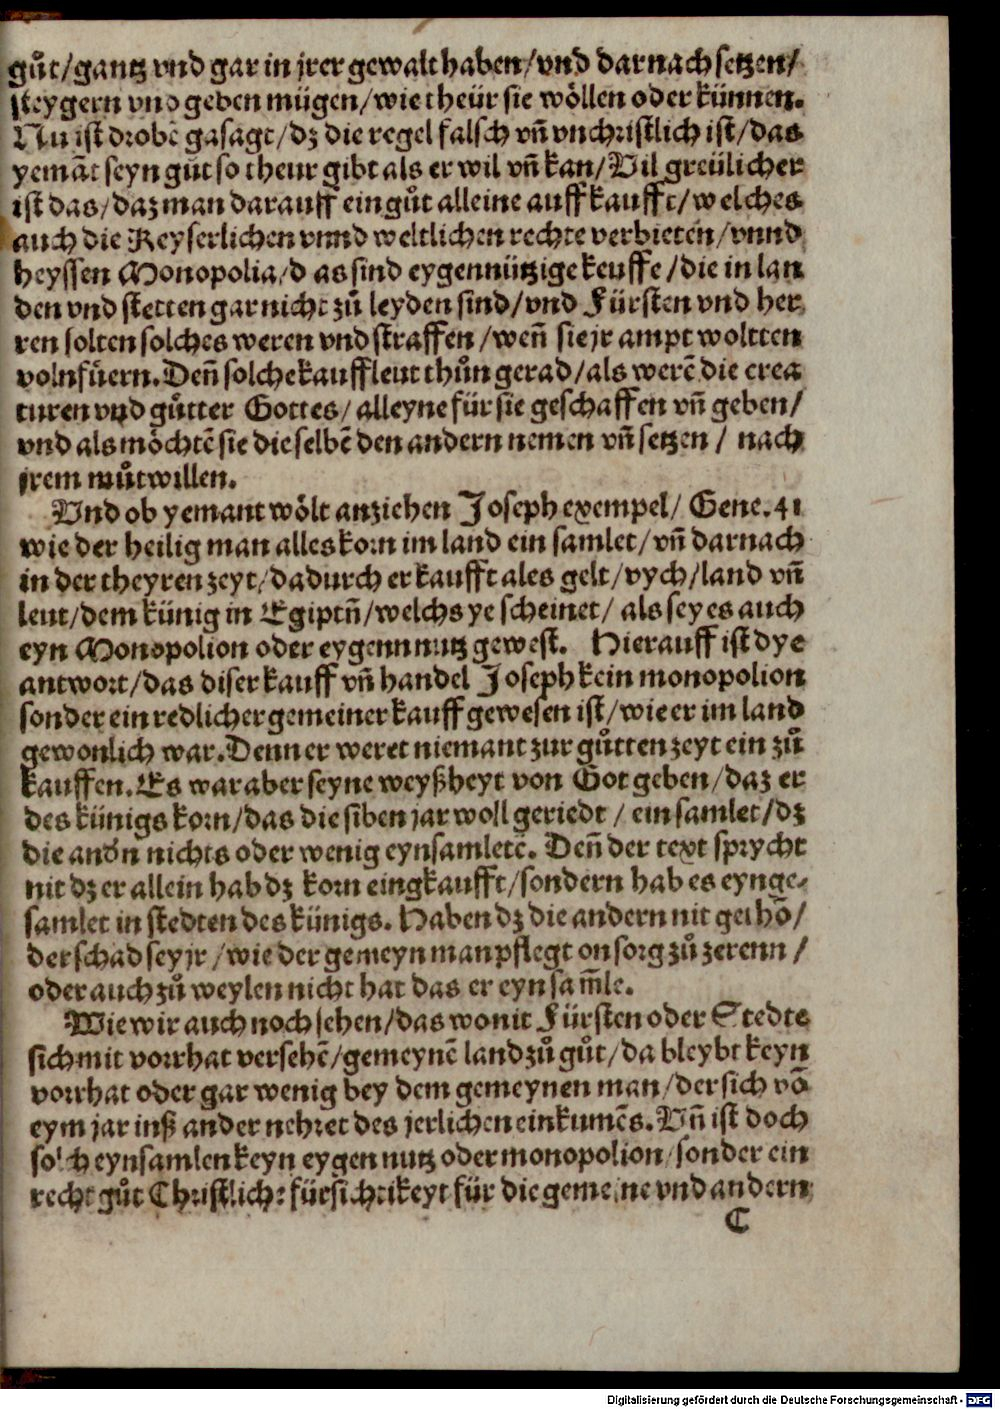 gůt/gantz vnd gar in jrer gewalt haben/vnd darnach setzen/
steygern vnd geben mügen/wie theür sie wöllen oder künnen.
Nu ist drobē gasagt/dz die regel falsch vn̄ vnchristlich ist/das
yemāt seyn gůt so theur gibt als er wil vn̄ kan/Vil greülicher
ist das/daz man darauff ein gůt alleine auff kaufft/welches
auch die Keyserlichen vnnd weltlichen rechte verbieten/vnnd
heyssen Monopolia/d as sind eygennützige keuffe/die in lan
den vnd stetten gar nicht zů leyden sind/vnd Fürsten vnd her
ren solten solches weren vnd straffen/wen̄ sie jr ampt woltten
volnfüern. Den̄ solche kauffleut thůn gerad/als werē die crea
turen vnd gůtter Gottes/alleyne für sie geschaffen vn̄ geben/
vnd als möchtē sie die selbē den andern nemen vn̄ setzen/ nach
jrem můtwillen.
Vnd ob yemant wölt anziehen Joseph exempel/ Gene. 41
wie der heilig man alles korn im land ein samlet/vn̄ darnach
in der theyren zeyt/dadurch er kaufft ales gelt/vych/land vn̄
leut/dem künig in Egiptn̄/welchs ye scheinet/ als sey es auch
eyn Monopolion oder eygenn nutz gewest. Hierauff ist dye
antwort/das diser kauff vn̄ handel Joseph kein monopolion
sonder ein redlicher gemeiner kauff gewesen ist/wie er im land
gewonlich war. Denn er weret niemant zur gůtten zeyt ein zů
kauffen. Es war aber seyne weyßheyt von Got geben/daz er
des künigs korn/das die siben jar woll geriedt/ ein samlet/dz
die andn̄ nichts oder wenig eynsamletē. Den̄ der text sprycht
nit dz er allein hab dz korn eingkaufft/sondern hab es eynge-
samlet in stedten des künigs. Haben dz die andern nit gethō/
der schad sey jr/wie der gemeyn man pflegt on sorg zů zerenn/
oder auch zů weylen nicht hat das er eyn sam̄le.
Wie wir auch noch sehen/das wo nit Fürsten oder Stedte
sich mit vorrhat versehē/gemeynē land zů gůt/da bleybt keyn
vorrhat oder gar wenig bey dem gemeynen man/der sich vō
eym jar inß ander nehret des jerlichen einkumēs. Vn̄ ist doch
solch eynsamlen keyn eygen nutz oder monopolion/sonder ein
recht gůt Christlicht fürsichtikeyt für die gemeine vnd andern
C
Digitalisierung gefördert durch die Deutsche Forschungsgemeinschaft - DFG